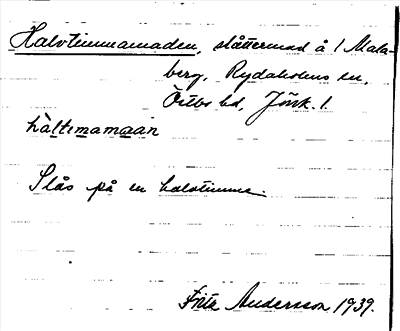 Halvtimmamaden, slåttermad å 1 Mala-
berg, Rydaholms sn,
Östbo hd, Jönk. l.
hàltɩmamaan
Slås på en halvtimme.
Andersson 1939.